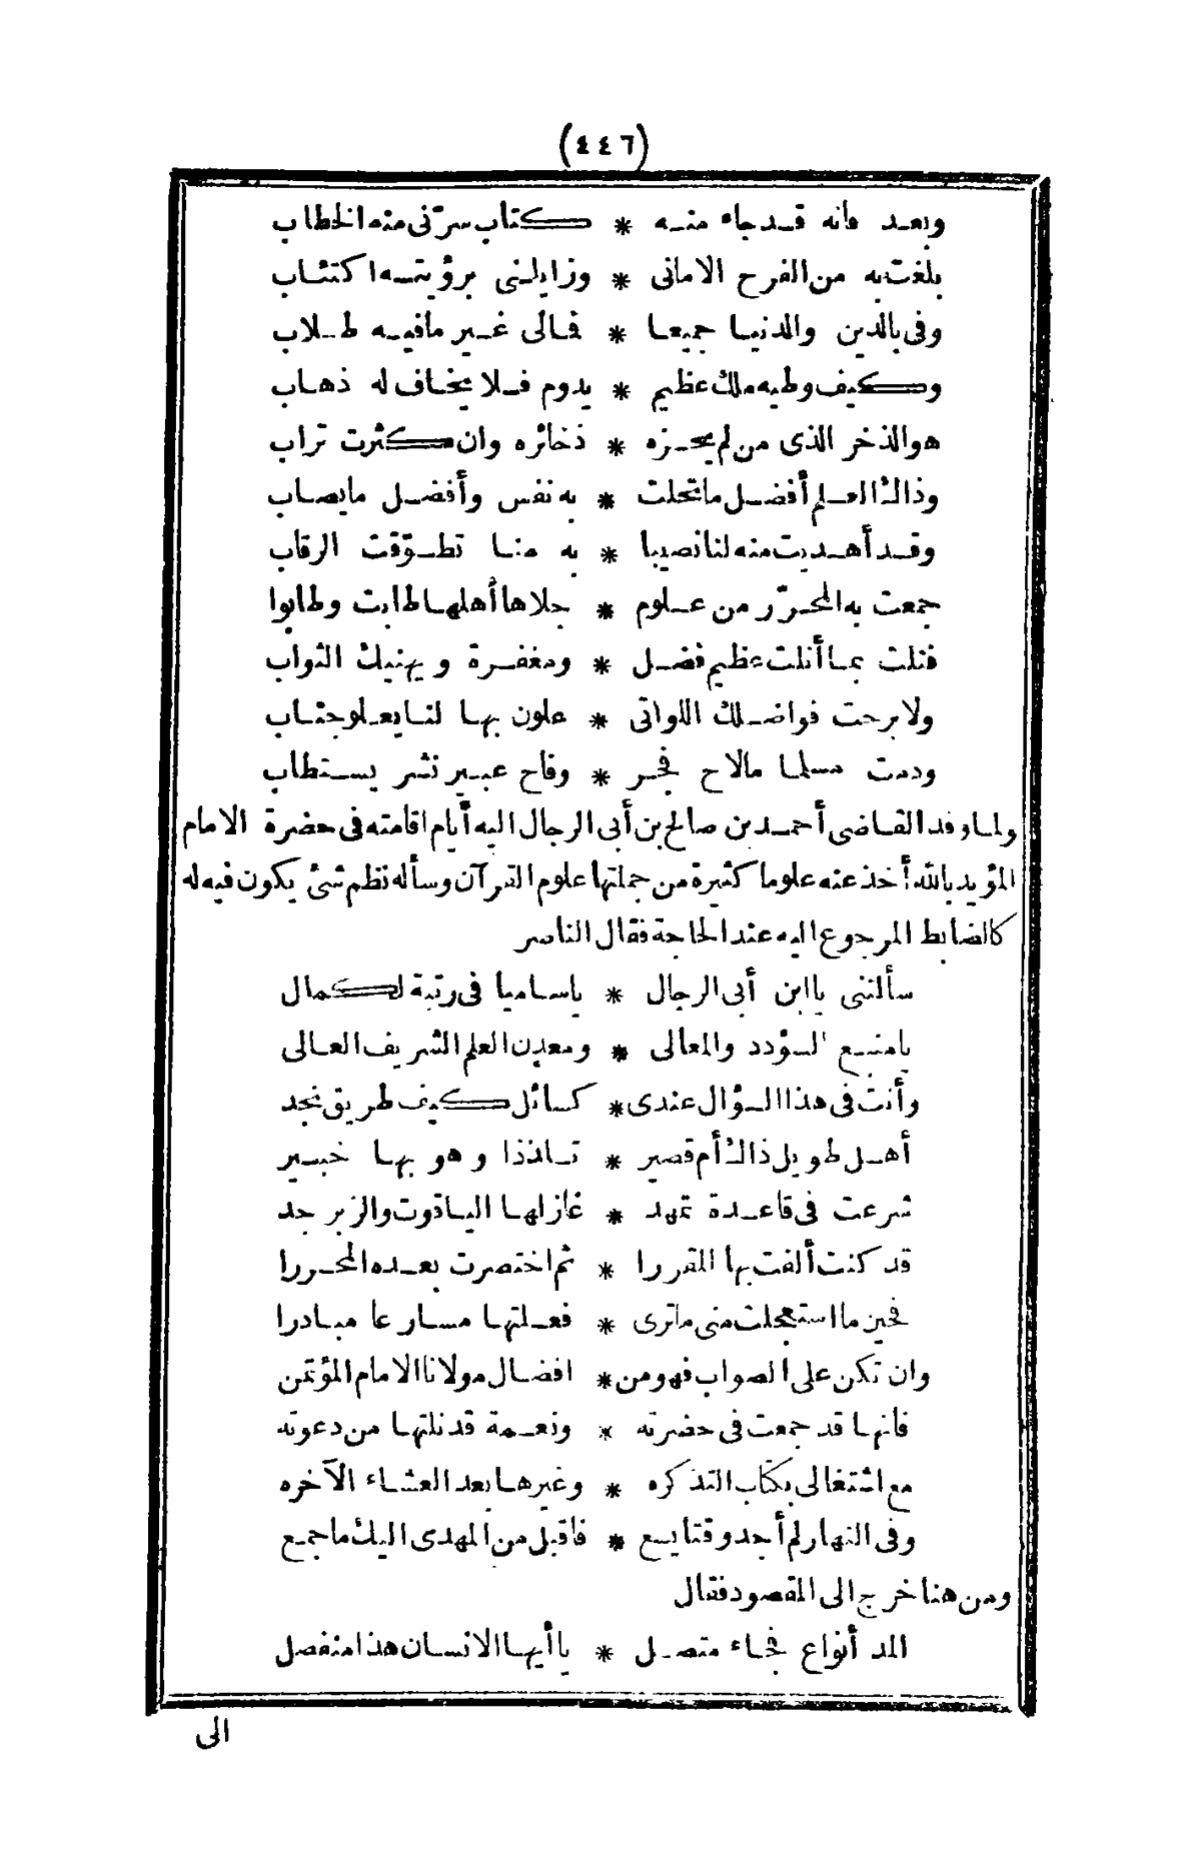 (٤٤٦)
وبعد فانه قد جاء منه * كتاب سرّنى منه الخطاب
بلغت به من الفرح الامانى * وزايلنى برؤيته اكتئاب
وفى بالدين والدنيا جميعا * فمالى غير مافيه طلاب
وكيف وطيه ملك عظيم * يدوم فلا يخاف له ذهاب
هو الذخر الذى من لم يحزه * ذخائره وان كثرت تراب
وذاك العلم أفضل ماتحلت * به نفس وأفضل مايصاب
وقد أهديت منه لنا نصيبا * به مننا تطوّقت الرقاب
جمعت به المحرّر من علوم * جلاها أهلها طابت وطابوا
فنلت بما أنلت عظيم فضل * ومغفرة ويهنيك الثواب
ولا برحت فواضلك اللواتى * علون بها لنا يعلو جناب
ودمت مسلما مالاح فجر * وفاح عبير نشر يستطاب
ولما وفد القاضى أحمد بن صالح بن أبى الرجال اليه أيام اقامته فى حضرة الامام
المؤيد بالله أخذ عنه علوما كثيرة من جملتها علوم القرآن وسأله نظم شئ يكون فيه له
كالضابط المرجوع اليه عند الحاجة فقال الناصر
سألتنى ياابن أبى الرجال * ياساميا فى رتبة لكمال
يامنبع السؤدد والمعالى * ومعدن العلم الشريف العالى
وأنت فى هذا السؤال عندى * كسائل كيف طريق نجد
أهل طويل ذاك أم قصير * تلذذا وهو بها خبير
شرعت فى قاعدة تمهد * غازلها الياقوت والزبرجد
قد كنت ألفت بها المقررا * ثم اختصرت بعده المحررا
فحين ما استعجلت منى ماترى * فعلتها مسارعا مبادرا
وان تكن على الصواب فهو من * افضال مولانا الامام المؤتمن
فانها قد جمعت فى حضرته * ونعمة قد نلتها من دعوته
مع اشتغالى بكتاب التذكره * وغيرها بعد العشاء الآخره
وفى النهار لم أجد وقتا يسع * فاقبل من المهدى اليك ماجمع
ومن هنا خرج الى المقصود فقال
المد أنواع فجاء متصل * ياأيها الانسان هذا منفصل
الى